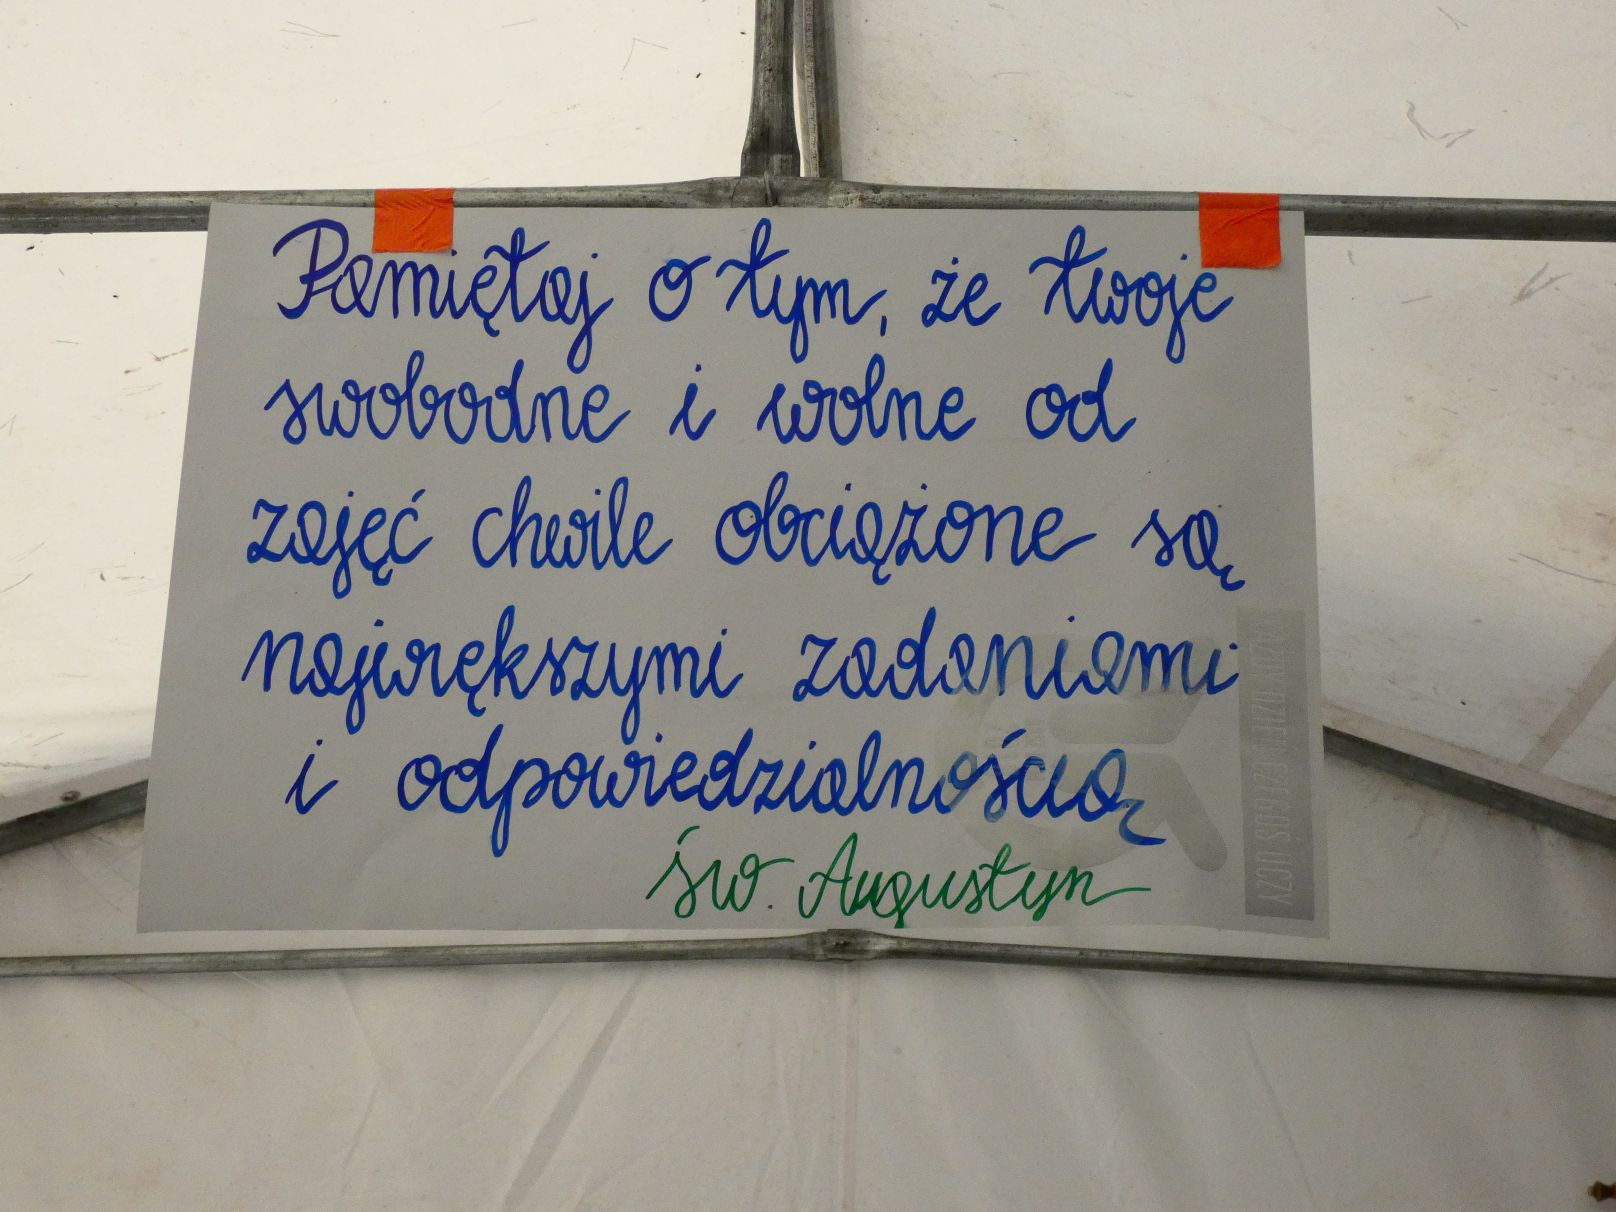 Pamiętaj o tym, że twoje
swobodne i wolne od
zajęć chwile obciążone są
największymi zadaniami
i odpowiedzialnością
św. Augustyn
UCZY